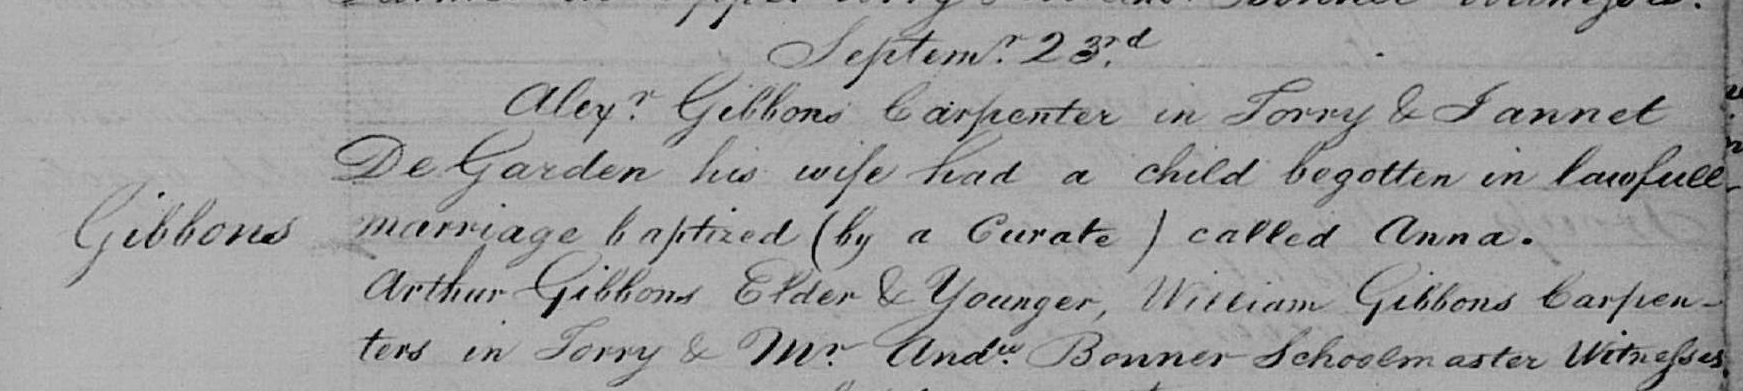 Septemr. 23rd.
Alexr. Gibbons Carpenter in Torry & Jannet
De Garden his wife had a child begotten in lawfull
Gibbons marriage baptized (by a Curate) called Anna.
Arthur Gibbons Elder & Younger, William Gibbons Carpen-
ters in Torry & Mr Andw. Bonner Schoolmaster Witnesses